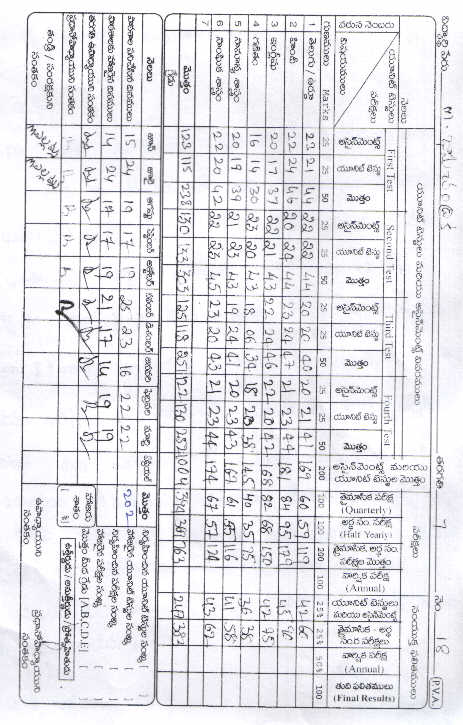 విద్యార్థి పేరు
తరగతి 7
నెం. 18
P.V.A.
వరుస నెంబరు
విషయములు
నెలలు
యూనిట్ టెస్టులు
పరీక్షలు
యూనిట్ టెస్టులు మరియు అసైన్‌మెంట్ వివరములు
పరీక్షలు
సంయుక్త ఫలితములు
First Test
Second Test
Third Test
Fourth Test
అసైన్‌మెంట్స్ యూనిట్ టెస్టు మొత్తం అసైన్‌మెంట్స్ యూనిట్ టెస్టు మొత్తం అసైన్‌మెంట్స్ యూనిట్ టెస్టు మొత్తం అసైన్‌మెంట్స్ యూనిట్ టెస్టు మొత్తం
అసైన్‌మెంట్స్ మరియు యూనిట్ టెస్టుల మొత్తం
త్రైమాసిక పరీక్ష (Quarterly)
అర్థ సం. పరీక్ష (Half Year)
త్రైమాసిక, అర్థ సం. పరీక్షల మొత్తం
వార్షిక పరీక్ష (Annual)
యూనిట్ టెస్టులు మరియు అసైన్‌మెంట్
త్రైమాసిక - అర్థ సం.ర పరీక్షలు
వార్షిక పరీక్ష (Annual)
తుది ఫలితములు (Final Results)
గుణములు Marks 25 25 50 25 25 50 25 25 50 25 25 50 200 100 100 200 100 25% 25% 50% 100
1 తెలుగు / ఉర్దూ 23 21 44 22 22 44 20 20 40 20 21 41 169 60 59 119 42 60
2 హిందీ 22 24 46 20 24 44 23 24 47 21 23 44 181 84 95 179 45 90
3 ఇంగ్లీషు 20 17 37 22 21 43 22 24 46 22 20 42 168 82 68 150 42 75
4 గణితం 16 14 30 23 20 43 18 06 34 18 20 38 145 40 35 75 36 38
5 సామాన్య శాస్త్రం 20 19 39 21 22 43 19 24 41 20 23 43 167 61 55 116 41 58
6 సాంఘిక శాస్త్రం 22 20 42 22 23 45 23 20 43 21 23 44 174 67 57 124 43 62
7
మొత్తం 123 115 238 130 133 303 125 118 251 122 130 252 1004 394 763 247 382
గ్రేడు
నెలలు జూన్ జూలై ఆగష్టు సెప్టెంబర్ అక్టోబర్ నవంబర్ డిసెంబర్ జనవరి ఫిబ్రవరి మార్చి ఏప్రిల్ మొత్తం
పాఠశాల పనిచేసిన దినములు 15 24 19 17 19 25 23 16 22 22 202
పాఠశాలకు హాజరైన దినములు 14 24 17 17 19 21 17 14 19 19
హాజరు శాతం
తరగతి ఉపాధ్యాయుని సంతకం
ప్రధానోపాధ్యాయుని సంతకం
తండ్రి / సంరక్షకుని సంతకం
నిర్వహించిన యూనిట్ టెస్టుల సంఖ్య
హాజరైన యూనిట్ టెస్టుల సంఖ్య
నిర్వహించిన పరీక్షల సంఖ్య
హాజరైన పరీక్షల సంఖ్య
మొత్తం మీద గ్రేడు (A,B,C,D,E)
ఉపాధ్యాయుని సంతకం
ప్రధానోపాధ్యాయుని సంతకం